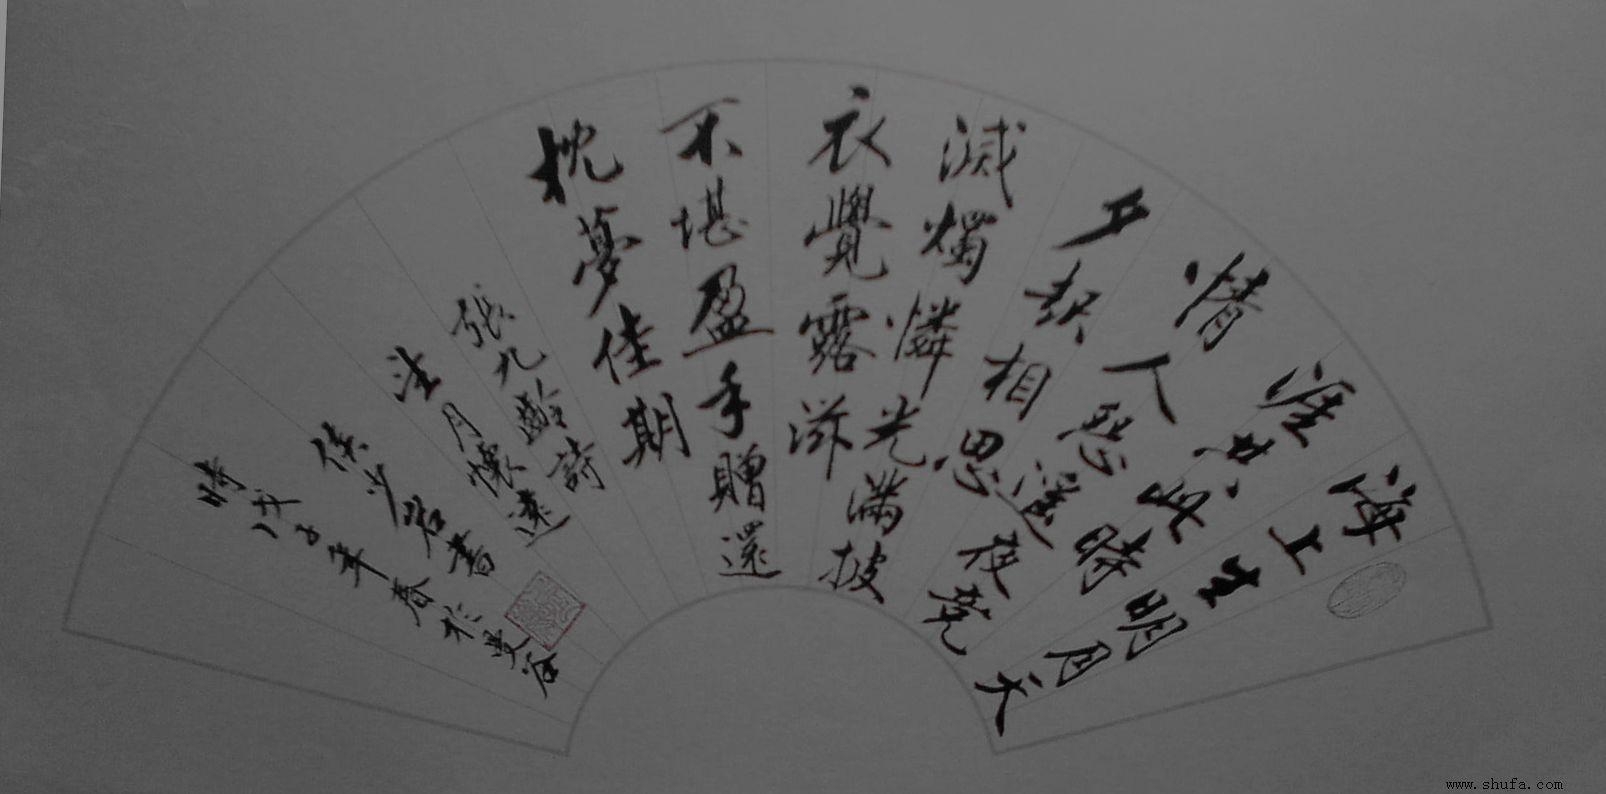 海上生明月天
涯共此時
情人怨遙夜竟
夕起相思
滅燭憐光滿披
衣覺露滋
不堪盈手贈還
枕夢佳期
張九齡詩
望月懷遠
書
時戊子年春於曼谷
www.shufa.com